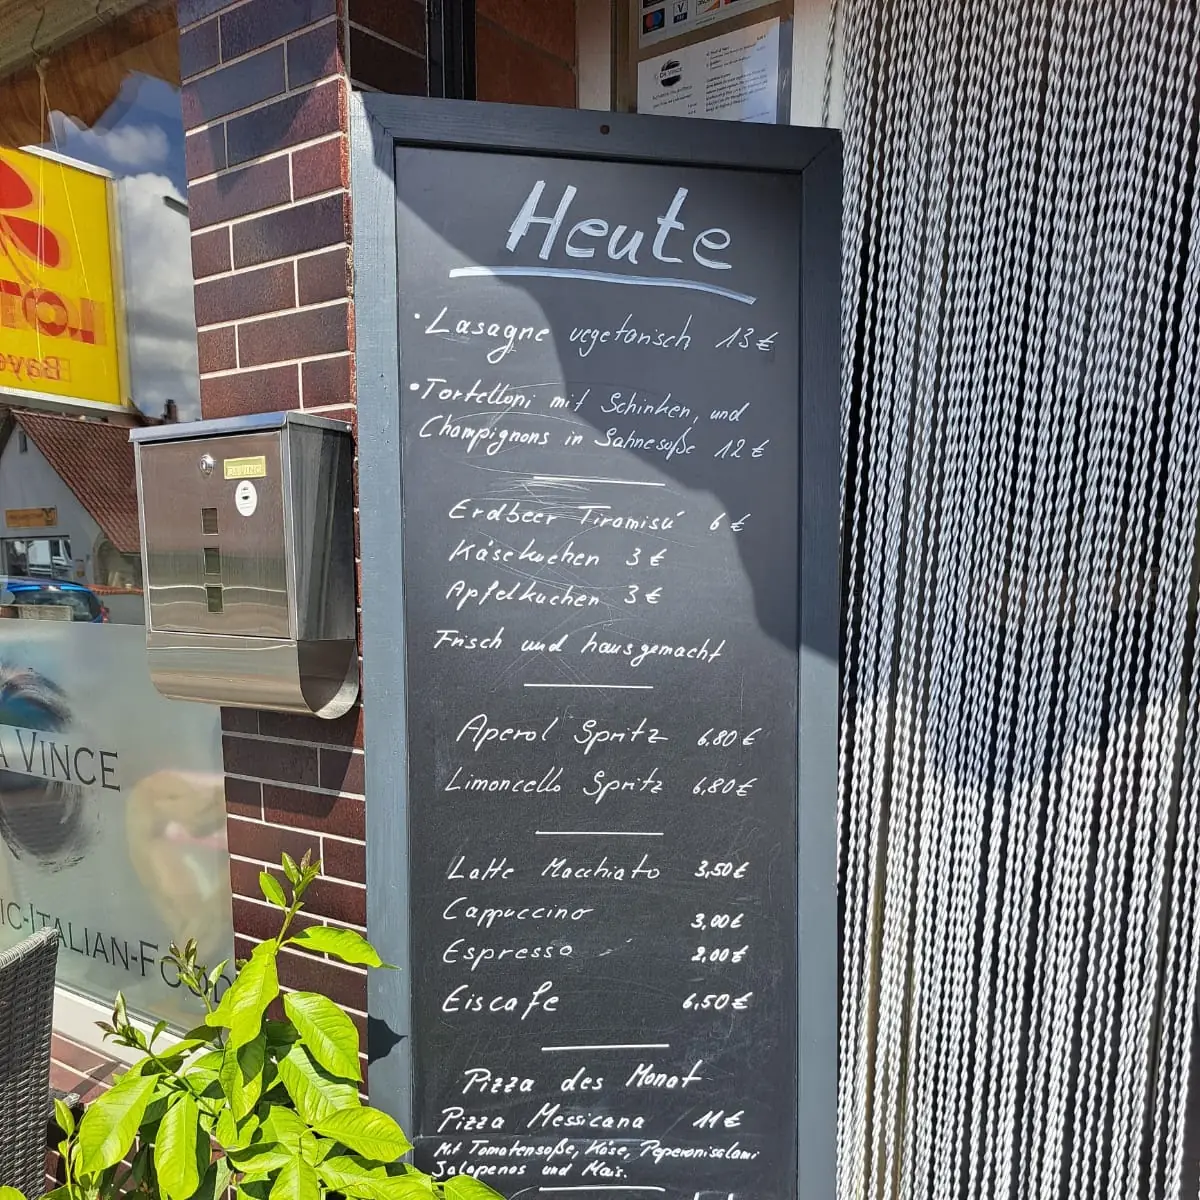 DA VINCE
LOTTO
Baye
Heute
• Lasagne vegetarisch 13 €
• Tortelloni mit Schinken, und
Champignons in Sahnesoße 12 €
Erdbeer Tiramisú 6 €
Käsekuchen 3 €
Apfelkuchen 3 €
Frisch und hausgemacht
Aperol Spritz 6,80 €
Limoncello Spritz 6,80 €
Latte Macchiato 3,50 €
Cappuccino 3,00 €
Espresso 2,00 €
Eiscafe 6,50 €
Pizza des Monat
Pizza Messicana 11 €
Mit Tomatensoße, Käse, Peperonisalami
Jalapenos und Mais.
A VINCE
IC-ITALIAN-FOOD